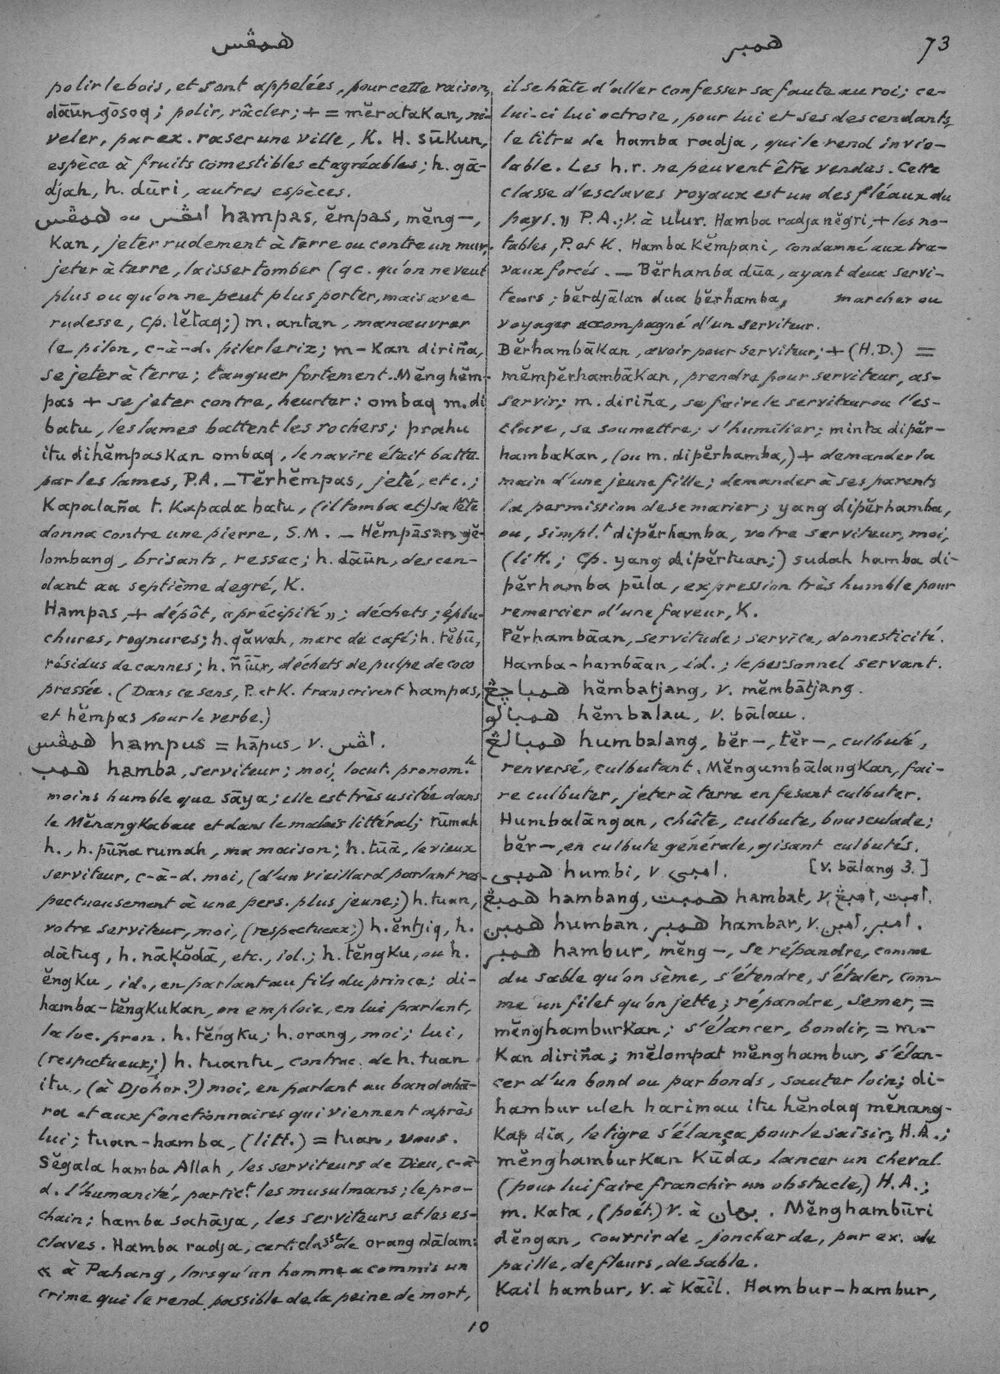 همڤس
همبر
73
polir le bois, et sont appelées, pour cette raison,
dāūn gōsoq; polir, râcler; + = mĕratakan, ni-
veler, par ex. raser une ville, K. H. sūkun,
espèce à fruits comestibles et agréables; h. gā-
djah, h. dūri, autres espèces.
همڤس ou امڤس hampas, ĕmpas, mĕng—,
kan, jeter rudement à terre ou contre un mur,
jeter à terre, laisser tomber (qc. qu'on ne veut
plus ou qu'on ne peut plus porter, mais avec
rudesse, cp. lĕtaq;) m. antan, manœuvrer
le pilon, c-à-d. piler le riz; m-kan diriña,
se jeter à terre; tanguer fortement. Mĕnghĕm-
pas + se jeter contre, heurter: ombaq m. di
batu, les lames battent les rochers; prahu
itu dihĕmpaskan ombaq, le navire était battu
par les lames, P.A. — Tĕrhĕmpas, jeté, etc.;
Kapalaña t. kapada batu, (il tomba et) sa tête
donna contre une pierre, S.M. — Hĕmpāsan gĕ-
lombang, brisants, ressac; h. dāūn, descen-
dant au septième degré, K.
Hampas, + dépôt, « précipité »; déchets; éplu-
chures, rognures; h. qăwah, marc de café; h. tĕbū,
résidus de cannes; h. ñīūr, déchets de pulpe de coco
pressée. (Dans ce sens, P. et K. transcrivent hampas,
et hĕmpas pour le verbe.)
همڤس hampus = hāpus, v. اڤس.
همب hamba, serviteur; moi, locut. pronom.le
moins humble que sāya; elle est très usitée dans
le Mĕnangkabau et dans le malais littéral; rūmah
h., h. pūña rumah, ma maison; h. tūā, le vieux
serviteur, c-à-d. moi, (d'un vieillard parlant res-
pectueusement à une pers. plus jeune;) h. tuan,
votre serviteur, moi, (respectueux;) h. ĕntjiq, h.
dātuq, h. nāķŏdā, etc., id.; h. tĕngku, ou h.
ĕngku, id., en parlant au fils du prince; di-
hamba-tĕngkukan, on emploie, en lui parlant,
la loc. pron. h. tĕngku; h. orang, moi; lui,
(respectueux;) h. tuantu, contrac. de h. tuan
itu, (à Djohor?) moi, en parlant au bandahā-
ra et aux fonctionnaires qui viennent après
lui; tuan-hamba, (litt.) = tuan, vous.
Sĕgala hamba Allah, les serviteurs de Dieu, c-à-
d. l'humanité, partict. les musulmans; le pro-
chain; hamba sahāya, les serviteurs et les es-
claves. Hamba radja, cert. classe de orang dālam:
« à Pahang, lorsqu'un homme a commis un
crime qui le rend passible de la peine de mort,
il se hâte d'aller confesser sa faute au roi; ce-
lui-ci lui octroie, pour lui et ses descendants,
le titre de hamba radja, qui le rend invio-
lable. Les h.r. ne peuvent être vendus. Cette
classe d'esclaves royaux est un des fléaux du
pays. » P.A.; v. à ulur. Hamba radja nĕgri, + les no-
tables, P. et K. Hamba Kĕmpani, condamné aux tra-
vaux forcés. — Bĕrhamba dūa, ayant deux servi-
teurs; bĕrdjālan dua bĕrhamba, marcher ou
voyager accompagné d'un serviteur.
Bĕrhambākan, avoir pour serviteur; + (H.D.) =
mĕmpĕrhambākan, prendre pour serviteur, as-
servir; m. diriña, se faire le serviteur ou l'es-
clave, se soumettre; s'humilier; minta dipĕr-
hambakan, (ou m. dipĕrhamba,) + demander la
main d'une jeune fille; demander à ses parents
la permission de se marier; yang dipĕrhamba,
ou, simpl.t dipĕrhamba, votre serviteur, moi,
(litt.; cp. yang dipĕrtuan;) sudah hamba di-
pĕrhamba pūla, expression très humble pour
remercier d'une faveur, K.
Pĕrhambāan, servitude; service, domesticité.
Hamba-hambāan, id.; le personnel servant.
همباچڠ hĕmbatjang, v. mĕmbātjang.
همبالو hĕmbalau, v. bālau.
همبالڠ humbalang, bĕr—, tĕr—, culbuté,
renversé, culbutant. Mĕngumbālangkan, fai-
re culbuter, jeter à terre en fesant culbuter.
Humbalāngan, chûte, culbute, bousculade;
bĕr—, en culbute générale, gisant culbutés.
[v. bālang 3.]
همبى humbi, v. امبى.
همبڠ hambang, همبت hambat, v. امبڠ, امبت.
همبن humban, همبر hambar, v. امبن, امبر.
همبر hambur, mĕng—, se répandre, comme
du sable qu'on sème, s'étendre, s'étaler, com-
me un filet qu'on jette; répandre, semer, =
mĕnghamburkan; s'élancer, bondir, = m.-
kan diriña; mĕlompat mĕnghambur, s'élan-
cer d'un bond ou par bonds, sauter loin; di-
hambur uleh harimau itu hĕndaq mĕnang-
kap dia, le tigre s'élança pour le saisir, H.A.;
mĕnghamburkan kūda, lancer un cheval
(pour lui faire franchir un obstacle,) H.A.;
m. kata, (poét.) v. à بهان. Mĕnghambūri
dĕngan, couvrir de, joncher de, par ex. de
paille, de fleurs, de sable.
Kail hambur, v. à kāīl. Hambur-hambur,
10